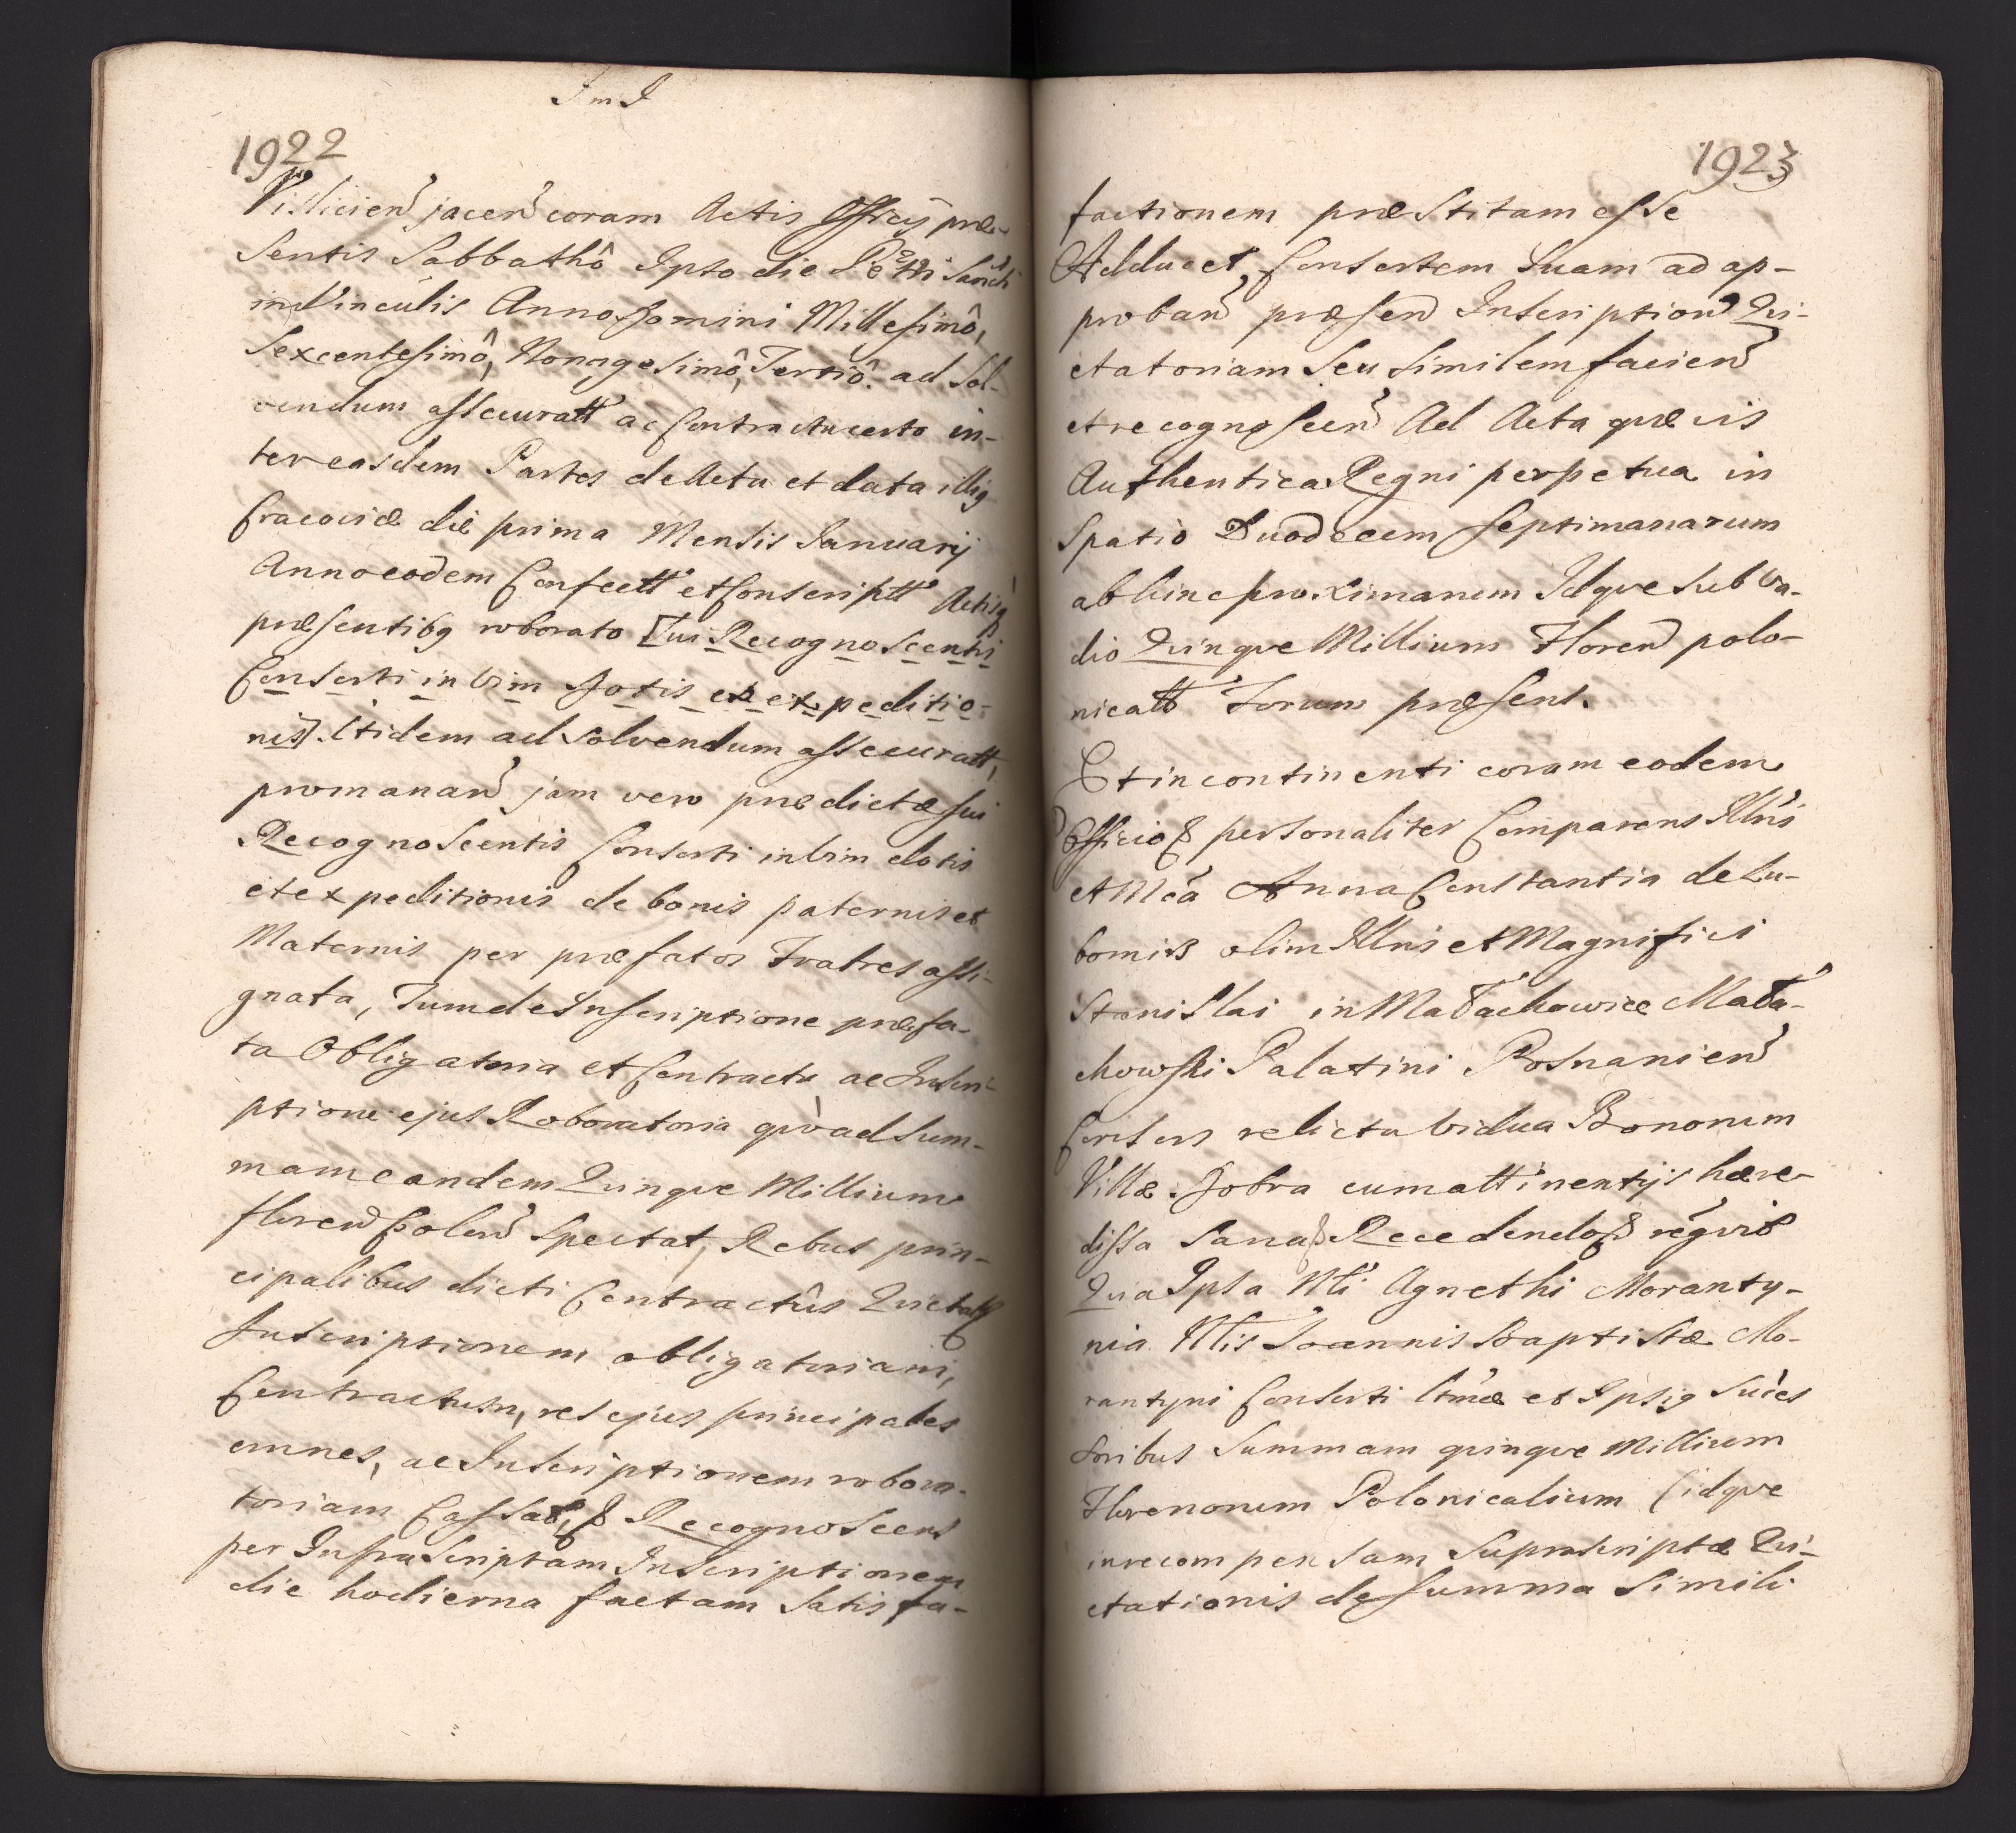 I m I
1922
Vislicieñ jaceñ coram Actis Officij præ-
sentis Sabbathô Ipso die S Petri Sancti
in Vinculis Anno Domini Millesimô,
Sexcentesimô, Nonagesimô, Tertiô. ad Sol-
vendum assecuratt ac Contractu certo in-
ter easdem Partes de Actu et data illig
Cracoviæ die prima Mensis Januarij
Anno eodem Confectt et Conscriptt Actisq
præsentibg roborato [Sui Recognoscentis
Consorti in vim Dotis et expeditio-
nis]. Itidem ad Solvendum assecuratt,
promanañ jam vero prædictæ sui
Recognoscentis Consorti in vim dotis
et expeditionis de bonis paternis et
Maternis per præfatos Fratres assi-
gnata, Tum de Inscriptione præfa-
ta Obligatoria et Contractu ac Inscri-
ptione ejus Roboratoria qvò ad Sum-
mam eandem Qvinqve Millium
floreñ Poloñ Spectat, Rebus prin-
cipalibus dicti Contractûs Qvietatt
Inscriptionem obligatoriam,
Contractum, res ejus principales
omnes, ac Inscriptionem robora-
toriam Cassat, Recognoscens
per Infrascriptam Inscriptionem
die hodierna factam Satisfa-
1923
factionem præstitam esse
Adducet, Consortem Suam ad ap-
probañ præseñ Inscriptioñ Qvi-
etatoriam Seu Similem facieñ
et recognosceñ Ad Acta qvævis
Authentica Regni perpetua in
Spatio Duodecem Septimanarum
abhinc proximarum Idqve Sub Va-
dio Qvinqve Millium Floreñ polo-
nicatt Forum præsens.
Et in continenti coram eodem
Officio personaliter Comparens Illris
et Mca Anna Constantia de Lu-
bomirz olim Illris et Magnifici
Stanislai in Małachowice Mała-
chowski Palatini Posnanieñ
Consors relicta Vidua Bonorum
Villæ Dobra cum attinentijs hære-
dissa Sana Recedendo regvit
Qvia Ipsa Nli Agnethi Moranty-
nia Nlis Joannis Baptistæ Mo-
rantyni Consorti ltmæ et Ipsig Succes
soribus Summam qvinqve Millium
Florenorum Polonicalium (idqve
in recompensam Suprascriptæ Qvi-
etationis de Summa Simili